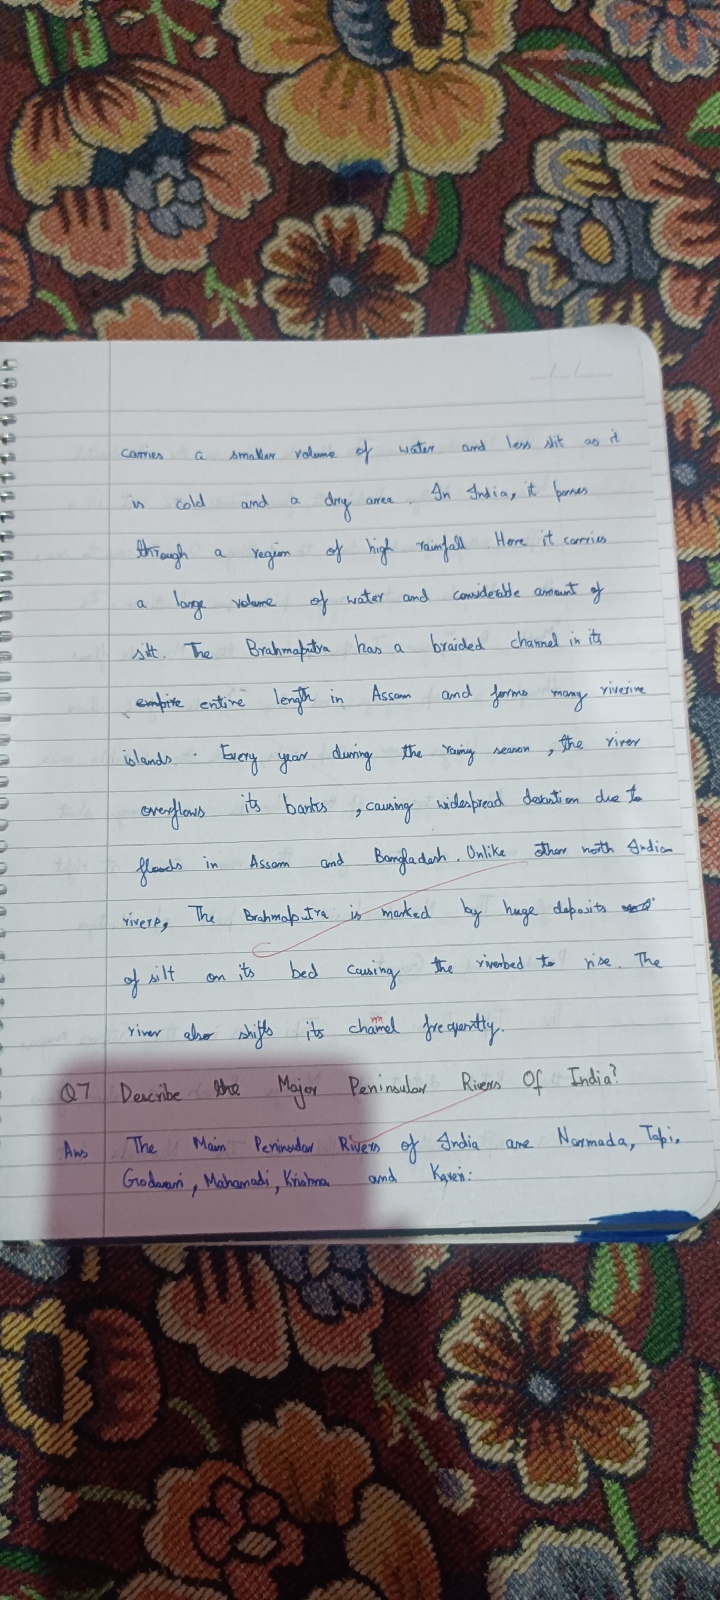 carries a smaller volume of water and less slit as it
is cold and a dry area. In India, it passes
through a region of high rainfall. Here it carries
a large volume of water and considerable amount of
silt. The Brahmaputra has a braided channel in its
empire entire length in Assam and forms many riverine
islands. Every year during the rainy season, the river
overflows its banks, causing widespread due to
floods in Assam and Bangladesh. Unlike other north Indian
rivers, The Brahmaputra is marked by huge deposits
of silt on its bed causing the riverbed to rise. The
river also shifts its channel frequently.
Q7 Describe the Major Peninsular Rivers Of India?
Ans The Main Peninsular Rivers of India are Narmada, Tapi,
Godavari, Mahanadi, Krishna and Kaveri.